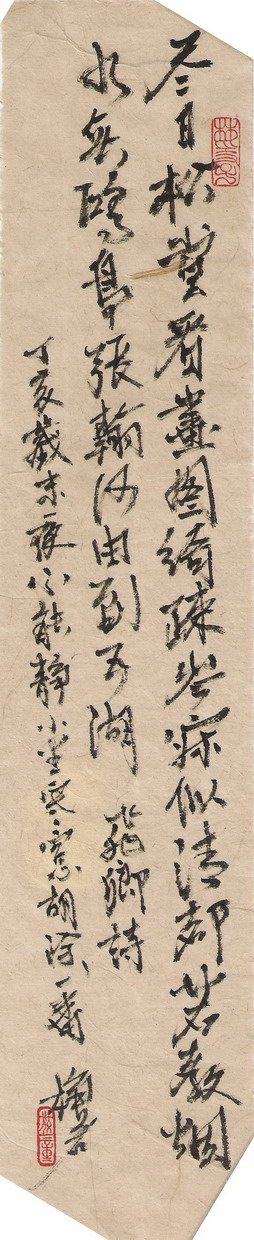 尽日松堂看畫圖綺疎岑寂似清都若教烟
水無鷗鳥張翰何由到五湖 卿詩
丁亥歲末夜不能靜小坐寒窗胡塗一番